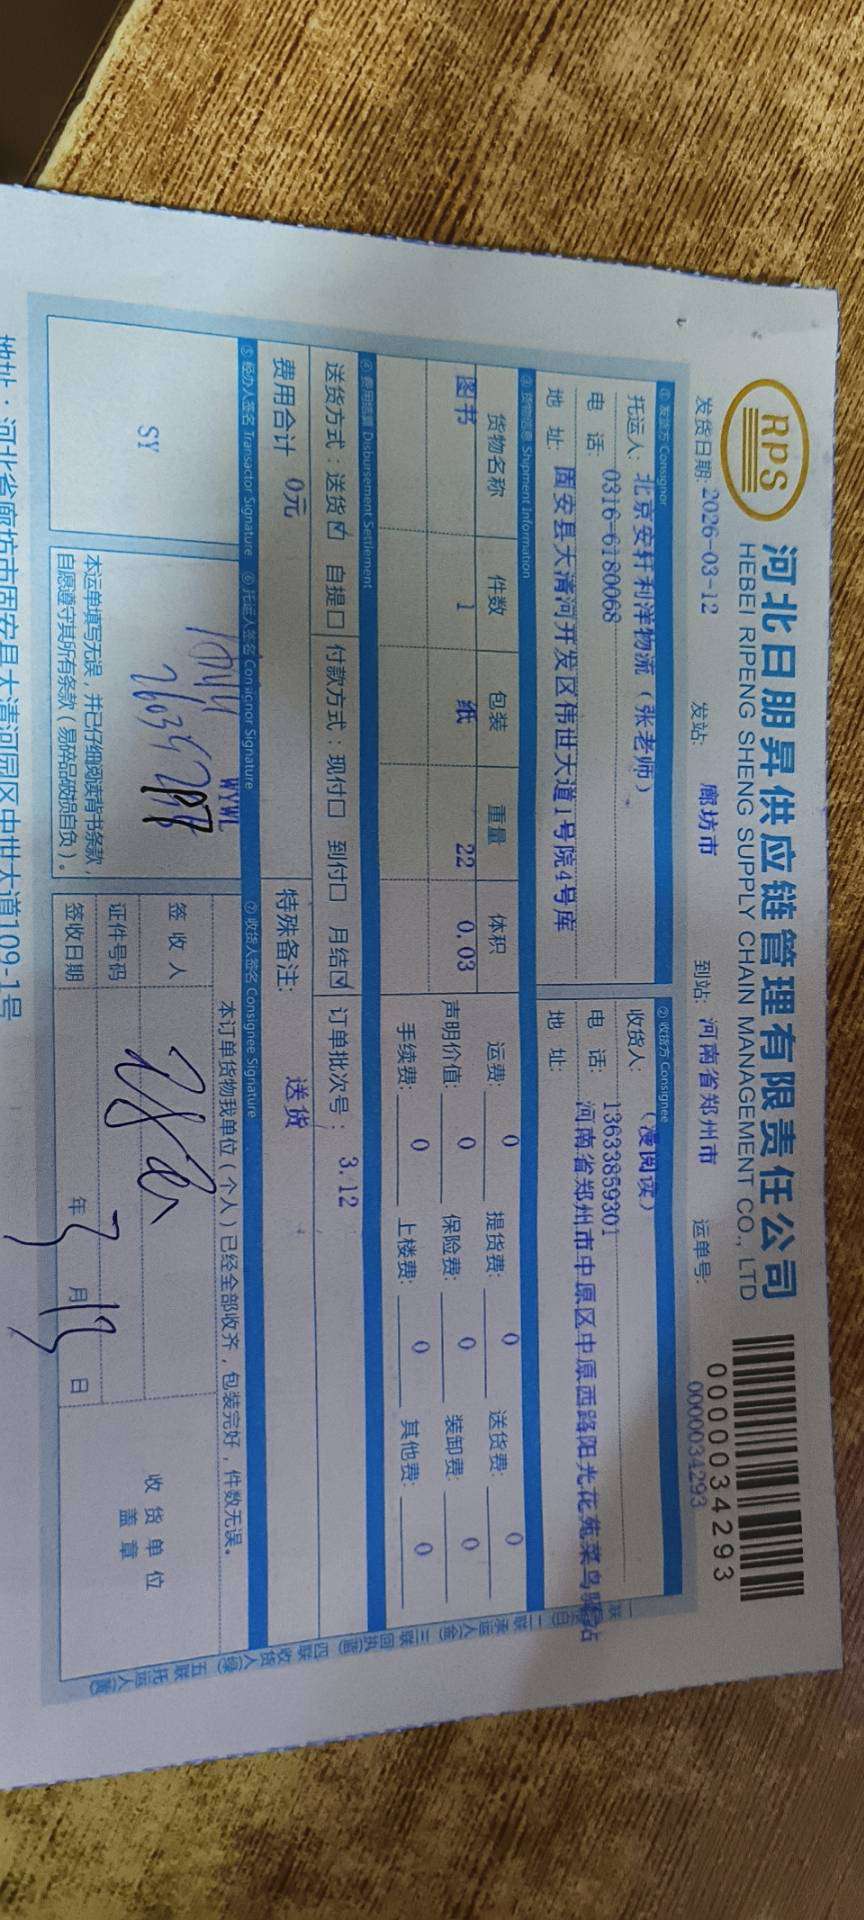 RPS
河北日朋昇供应链管理有限责任公司
HEBEI RIPENG SHENG SUPPLY CHAIN MANAGEMENT CO., LTD
0000034293
发货日期: 2026-03-12 发站: 廊坊市 到站: 河南省郑州市 运单号: 0000034293
① 发货方 Consignor
托运人: 北京安轩利洋物流（张老师）
电 话: 0316-6180068
地 址: 固安县大清河开发区伟世大道1号院4号库
② 收货方 Consignee
收货人: （漫阅读）
电 话: 13633859301
地 址: 河南省郑州市中原区中原西路阳光花苑菜鸟驿站
③ 货物信息 Shipment Information
货物名称 件数 包装 重量 体积
图书 1 纸 22 0.03
运费: 0 提货费: 0 送货费: 0
声明价值: 0 保险费: 0 装卸费: 0
手续费: 0 上楼费: 0 其他费: 0
④ 费用结算 Disbursement Settlement
送货方式：送货☑ 自提☐ 付款方式：现付☐ 到付☐ 月结☑ 订单批次号： 3.12
费用合计 0元 特殊备注: 送货
⑤ 经办人签名 Transactor Signature ⑥ 托运人签名 Consignor Signature ⑦ 收货人签名 Consignee Signature
SY
WYWL
本运单填写无误，并已仔细阅读背书条款，
自愿遵守其所有条款（易碎品破损自负）。
本订单货物我单位（个人）已经全部收齐，包装完好，件数无误。
签 收 人
证件号码
签收日期 年 3 月 13 日
收 货 单 位
盖 章
一联 二联 承运人（金） 三联 回执（蓝） 四联 收货人（绿） 五联 托运人（黄）
地址：河北省廊坊市固安县大清河园区中世大道109-1号